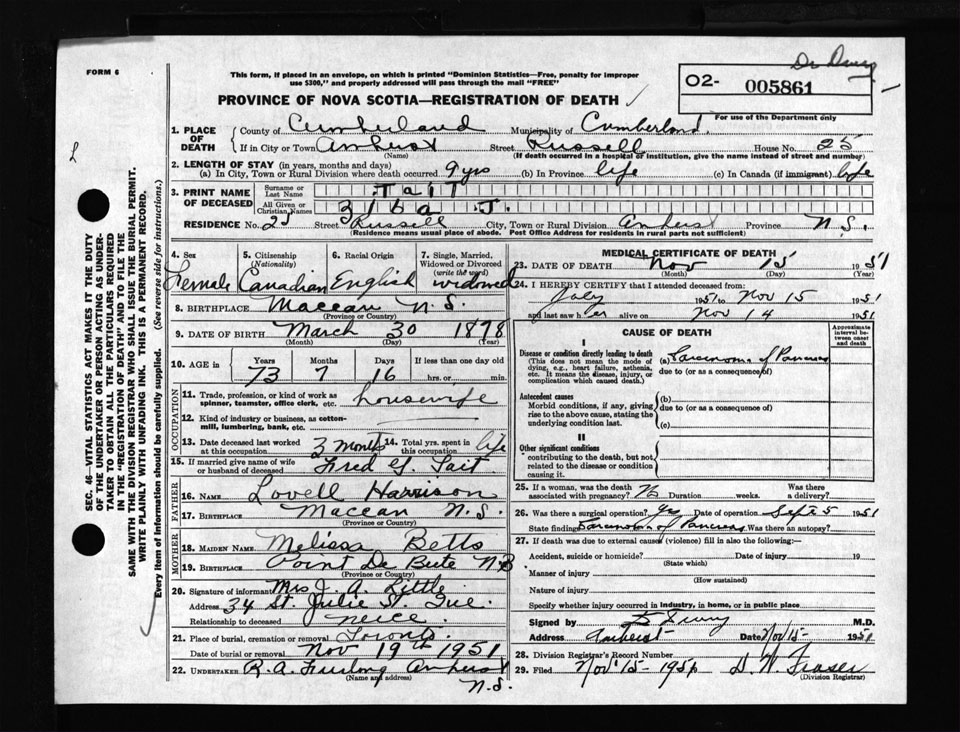 FORM 6
This form, if placed in an envelope, on which is printed "Dominion Statistics—Free, penalty for improper
use $300," and properly addressed will pass through the mail "FREE"
PROVINCE OF NOVA SCOTIA—REGISTRATION OF DEATH ✓
O2- 005861
For use of the Department only
1. PLACE OF DEATH
County of Cumberland Municipality of Cumberland.
If in City or Town Amherst Street Russell House No. 25
(Name) (If death occurred in a hospital or institution, give the name instead of street and number)
2. LENGTH OF STAY (in years, months and days)
(a) In City, Town or Rural Division where death occurred 9 yrs (b) In Province life (c) In Canada (if immigrant) life
3. PRINT NAME OF DECEASED
Surname or Last Name TAIT
All Given or Christian Names ZIBA J.
RESIDENCE No. 25 Street Russell City, Town or Rural Division Amherst Province N.S.
(Residence means usual place of abode. Post Office Address for residents in rural parts not sufficient)
4. Sex Female
5. Citizenship (Nationality) Canadian
6. Racial Origin English
7. Single, Married, Widowed or Divorced (write the word) widowed
8. BIRTHPLACE Maccan N.S.
(Province or Country)
9. DATE OF BIRTH March 30 1878
(Month) (Day) (Year)
10. AGE in Years 73 Months 7 Days 16 If less than one day old hrs. or min.
OCCUPATION
11. Trade, profession, or kind of work as spinner, teamster, office clerk, etc. housewife
12. Kind of industry or business, as cotton-mill, lumbering, bank, etc.
13. Date deceased last worked at this occupation 3 months 14. Total yrs. spent in this occupation life
15. If married give name of wife or husband of deceased Fred G. Tait.
FATHER
16. NAME Lovell Harrison
17. BIRTHPLACE Maccan N.S.
(Province or Country)
MOTHER
18. MAIDEN NAME Melissa Betts
19. BIRTHPLACE Point De Bute N.B
(Province or Country)
20. Signature of informant Mrs J. A. Little
Address 34 St. Julie St. Que.
Relationship to deceased neice.
21. Place of burial, cremation or removal Toronto.
Date of burial or removal Nov 19th 1951
22. UNDERTAKER R.A. Furlong Amherst
(Name and address) N.S.
MEDICAL CERTIFICATE OF DEATH
23. DATE OF DEATH Nov 15 1951
(Month) (Day) (Year)
24. I HEREBY CERTIFY that I attended deceased from:
July 1951 to Nov 15 1951
and last saw her alive on Nov 14 1951
CAUSE OF DEATH
Approximate interval between onset and death
I
Disease or condition directly leading to death
(This does not mean the mode of dying, e.g., heart failure, asthenia, etc. It means the disease, injury, or complication which caused death.)
(a) Carcinoma of Pancreas
due to (or as a consequence of)
Antecedent causes
Morbid conditions, if any, giving rise to the above cause, stating the underlying condition last.
(b)
due to (or as a consequence of)
(c)
II
Other significant conditions
contributing to the death, but not related to the disease or condition causing it.
25. If a woman, was the death associated with pregnancy? No Duration weeks. Was there a delivery?
26. Was there a surgical operation? Yes Date of operation Sept 5 1951
State findings Carcinoma of Pancreas Was there an autopsy?
27. If death was due to external causes (violence) fill in also the following:—
Accident, suicide or homicide? Date of injury 19
(State which)
Manner of injury
(How sustained)
Nature of injury
Specify whether injury occurred in industry, in home, or in public place
Signed by M.D.
Address Amherst Date Nov 15- 1951
28. Division Registrar's Record Number
29. Filed Nov 15- 1951 D. W. Fraser
(Division Registrar)
SEC. 46—VITAL STATISTICS ACT MAKES IT THE DUTY
OF THE UNDERTAKER OR PERSON ACTING AS UNDER-
TAKER TO OBTAIN ALL THE PARTICULARS REQUIRED
IN THE "REGISTRATION OF DEATH" AND TO FILE THE
SAME WITH THE DIVISION REGISTRAR WHO SHALL ISSUE THE BURIAL PERMIT.
WRITE PLAINLY WITH UNFADING INK. THIS IS A PERMANENT RECORD.
Every item of information should be carefully supplied. (See reverse side for instructions.)